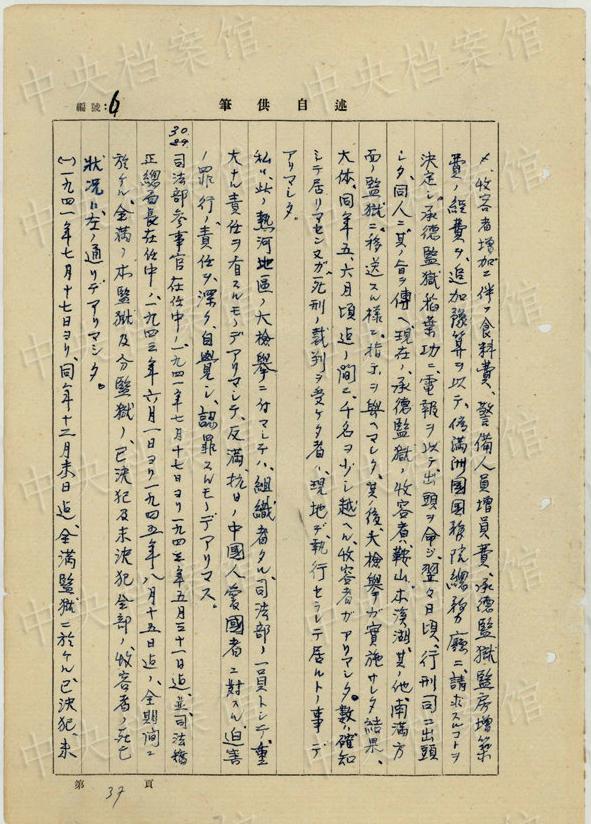 編號:6
筆供自述
〆、收容者増加ニ伴フ食料費、警備人員増員費、承德監獄監房増築
費ノ經費ヲ、追加豫算ヲ以テ、偽滿洲國国務院總務廳ニ、請求スルコトヲ
決定シ、承德監獄稻葉功ニ、電報ヲ以テ出頭ヲ命ジ、翌々日頃、行刑司ニ出頭
シタ、同人ニ、其ノ旨ヲ傳ヘ、現在ノ承德監獄ノ收容者、鞍山、本溪湖、其ノ他、南滿方
面ノ監獄ニ、移送スル様ニ、指示ヲ與ヘマシタ。其ノ後、大檢擧ガ實施サレタ結果、
大体、同年五、六月頃迠ノ間ニ、千名ヲ少シ越ヘル、收容者ガアリマシタ。數ハ確知
シテ居リマセンヌガ、死刑ノ裁判ヲ受ケタ者ハ、現地デ執行セラレテ居ルトノ事デ
アリマシタ。
私ハ、此ノ熱河地區ノ大檢擧ニ分マシテハ、組織者タル、司法部ノ一員トシテ、重
大ナル責任ヲ有スルモノデアリマシテ、反滿抗日ノ中國人愛國者ニ對スル、迫害
ノ罪行ノ責任ヲ、深ク、自覺シ、認罪スルモノデアリマス。
30. 司法部參事官在任中ノ、一九四一年七月十七日ヨリ一九四三年五月三十一日迠、並司法矯
正總局長在任中ノ、一九四三年六月一日ヨリ一九四五年八月十五日迠ノ、全期間ニ
於ケル、全滿ノ本監獄及分監獄ノ、已決犯及未決犯全部ノ、收容者ノ死亡
狀況ハ、左ノ通リデアリマシタ。
(一)一九四一年七月十七日ヨリ、同年十二月末日迠、全滿監獄ニ於ケル、已決犯、未
第 37 頁
中央档案馆